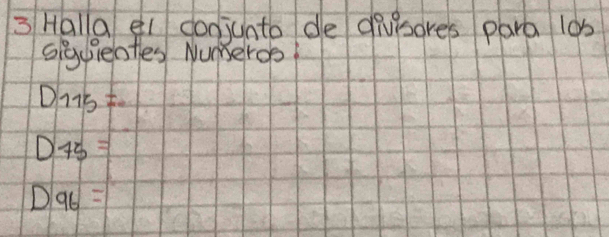 3 Halla el conjunto de divisores para los
siguientes Numeros:
D115 =
D45 =
D96 =